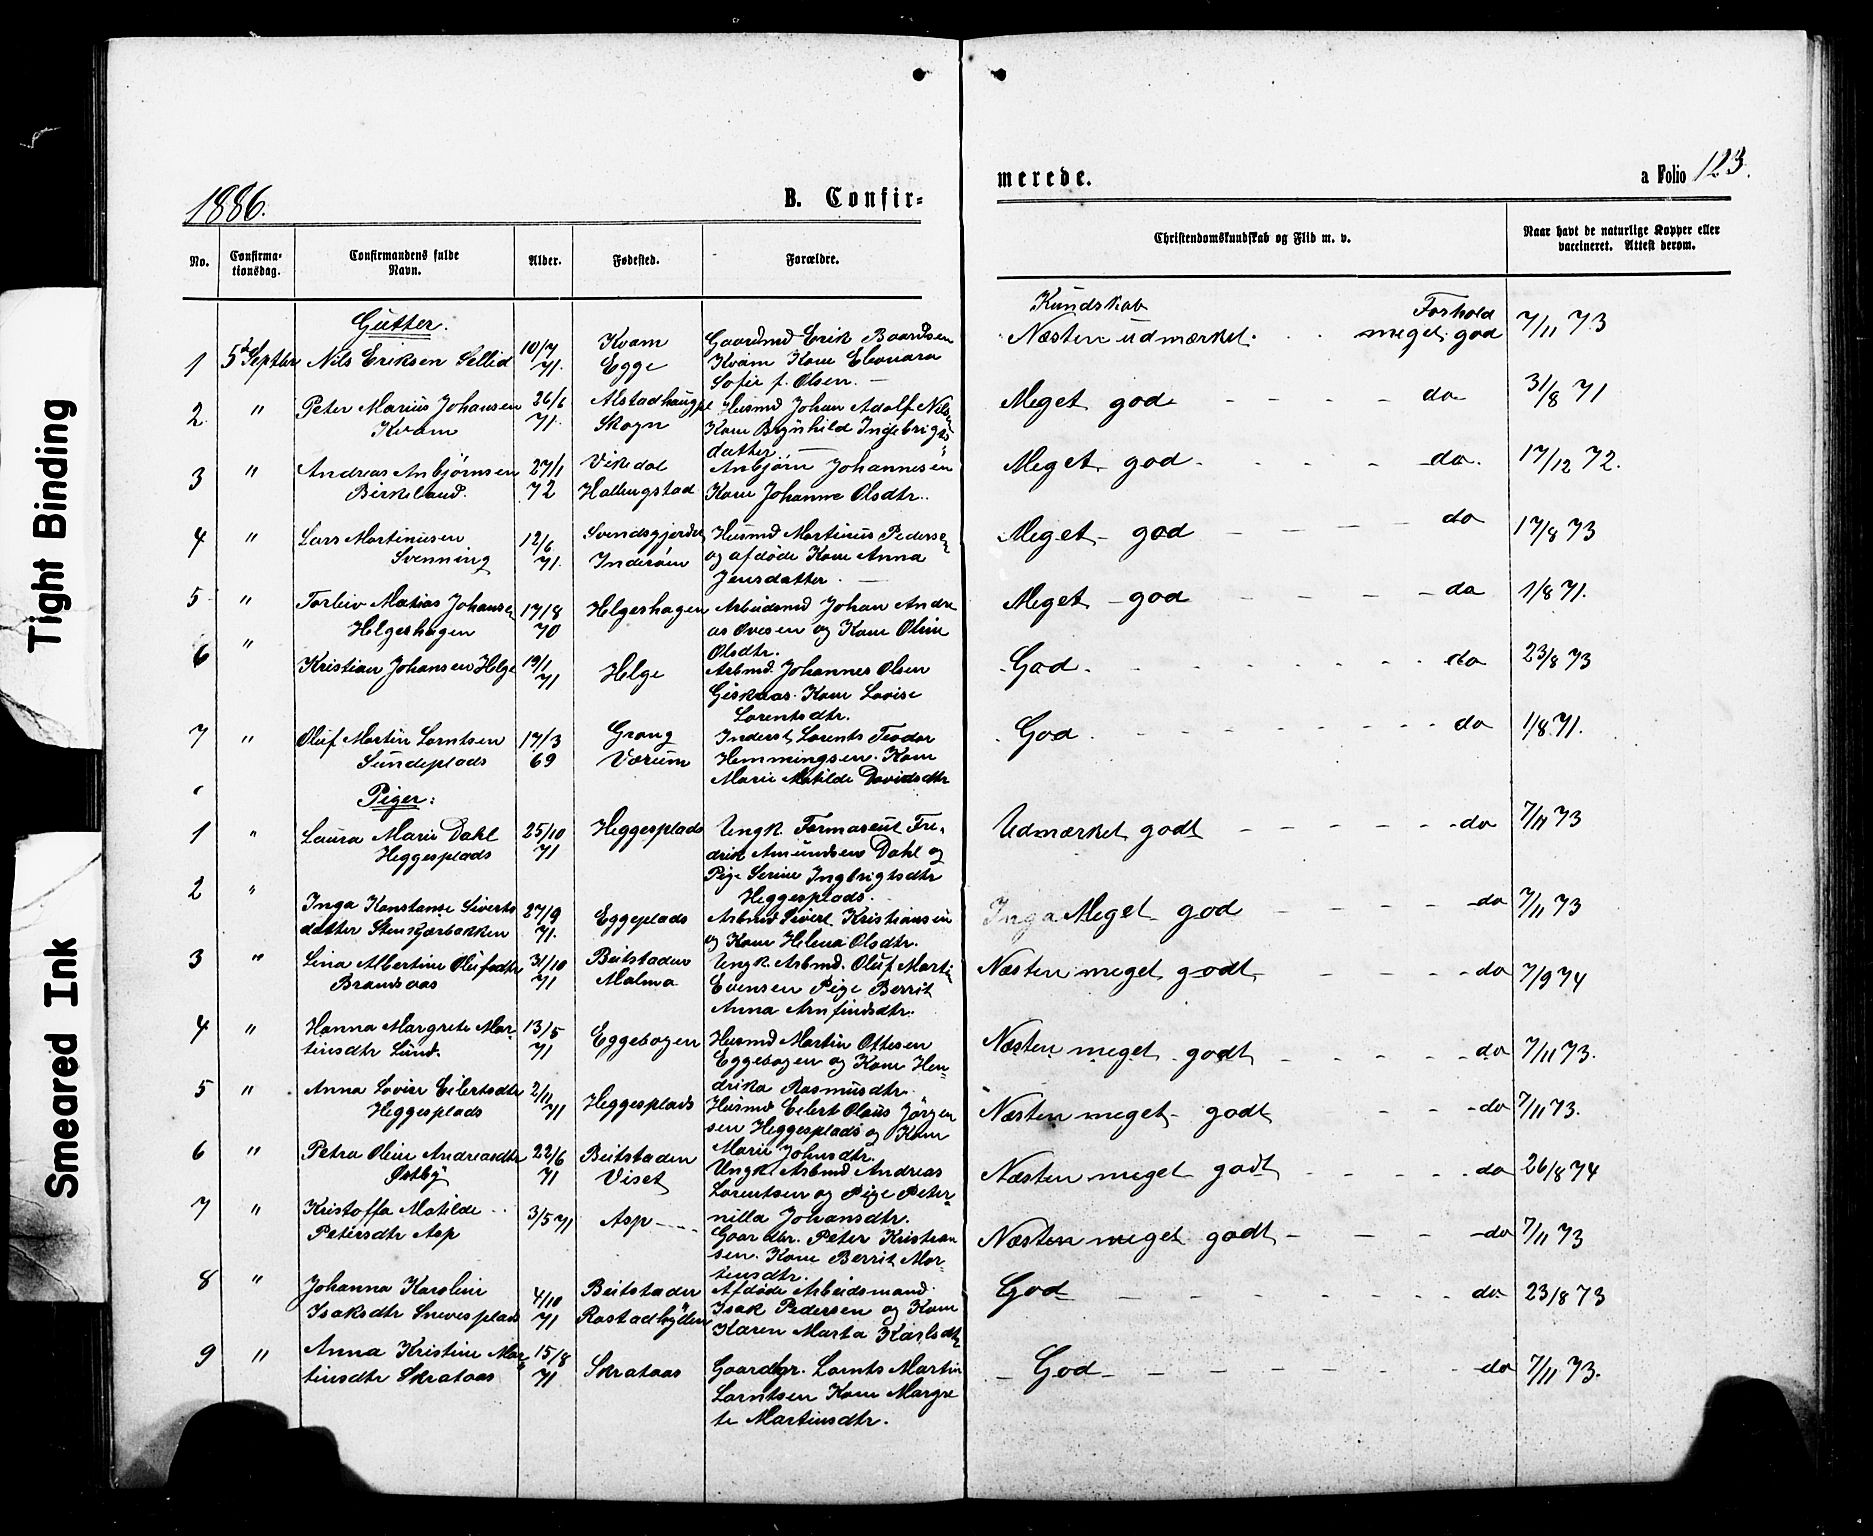 Tight Binding
Smeared Ink
1886.
B. Confir-
merede.
a Folio 123.
No.
Confirma-
tionsdag.
Confirmandens fulde
Navn.
Alder.
Fødested.
Forældre.
Christendomskundskab og Flid m. v.
Naar havt de naturlige Kopper eller
vaccineret. Attest derom.
Gutter.
Kundskab Forhold
1 5te Septbr Nils Eriksen Sellid 10/7 71. Kvam Egge
Gaardmd Erik Baardsen
Kvam Kone Elonara
Sofie f. Olsen.
Næsten udmærket. meget god 7/11 73
2 " Peter Marius Johansen
Kvam
26/6 71. Alstadhaug Skogn
Husmd Johan Adolf Nils
Kone Brynhild Ingebrigts
datter
Meget god do 31/8 71
3 " Andreas Anbjørnsen
Birkeland.
27/1 72 Vikedal Hallingstad
Anbjørn Johannesen
Kone Johanne Olsdtr.
Meget god do. 17/12 72.
4 " Lars Martinusen
Svenning
12/6 71. Svendsgjerdet Inderøen
Husmd Martinus Pedersen
og afdøde Kone Anna
Jensdatter.
Meget god do 17/8 73
5 " Torleiv Matias Johansen
Helgeshagen
17/8 70 Helgeshagen
Arbeidsmd Johan Andre
as Ovesen og Kone Oline
Olsdtr.
Meget god do 1/8 71.
6 " Kristian Johansen Helge 19/1 71 Helge
Arbmd Johannes Olsen
Giskaas. Kone Lovise
Lorentsdtr.
God. do 23/8 73
7 " Oluf Martin Lorntsen
Sundeplads
17/3 69 Grong Værum
Inderst Lorents Teodor
Hemmingsen. Kone
Marie Matilde Davidsdtr
God. do 1/8 71.
Piger:
1 " Laura Marie Dahl
Heggesplads
25/10 71 Heggesplads
Ungk. Farmaseut Fre-
drik Amundsen Dahl og
Pige Serine Ingbrigtsdtr
Heggesplads.
Udmærket godt do 7/11 73
2 " Inga Konstanse Siverts
datter Stensgærbakken
27/9 71. Eggeplads
Arbmd Sivert Kristiansen
og Kone Helena Olsdtr.
Inga Meget god do 7/11 73
3 " Lina Albertine Olufsdtr
Brandsaas
31/10 71 Beitstaden Malma
Ungk. Arbmd. Oluf Martin
Evensen Pige Berrit
Anna Arnfindsdtr.
Næsten meget godt do 7/9 74
4 " Hanna Margrete Mar-
tinsdtr Lund.
13/5 71 Eggebogen
Husmd Martin Ottesen
Eggebogen og Kone Hen-
drika Rasmusdtr.
Næsten meget godt do 7/11 73.
5 " Anna Lovise Eilertsdtr
Heggesplads
2/11 71 Heggesplads
Husmd Eilert Olaus Jörgen
sen Heggesplads og Kone
Marie Johnsdtr.
Næsten meget godt do 7/11 73.
6 " Petra Oline Andreasdtr
Østby
22/6 71 Beitstaden Viset
Ungk. Arbmd Andreas
Lorentsen og Pige Peter-
nilla Johansdtr.
Næsten meget godt do 26/8 74
7 " Kristoffa Matilde
Petersdtr Asp
3/5 71 Asp
Gaardbr. Peter Kristian
sen. Kone Berrit Mor-
tensdtr.
Næsten meget godt do 7/11 73
8 " Johanna Karoline
Isaksdtr Snevesplads
4/10 71 Beitstaden Rostadbylden
Afdøde Arbeidsmand
Isak Pedersen og Kone
Karen Marta Karlsdtr
God do 23/8 73
9 " Anna Kristine Mar
tinsdtr Skrataas
15/8 71 Skrataas
Gaardbr. Lornts Martin
Lorntsen Kone Margre
te Martinsdtr.
God do 7/11 73.